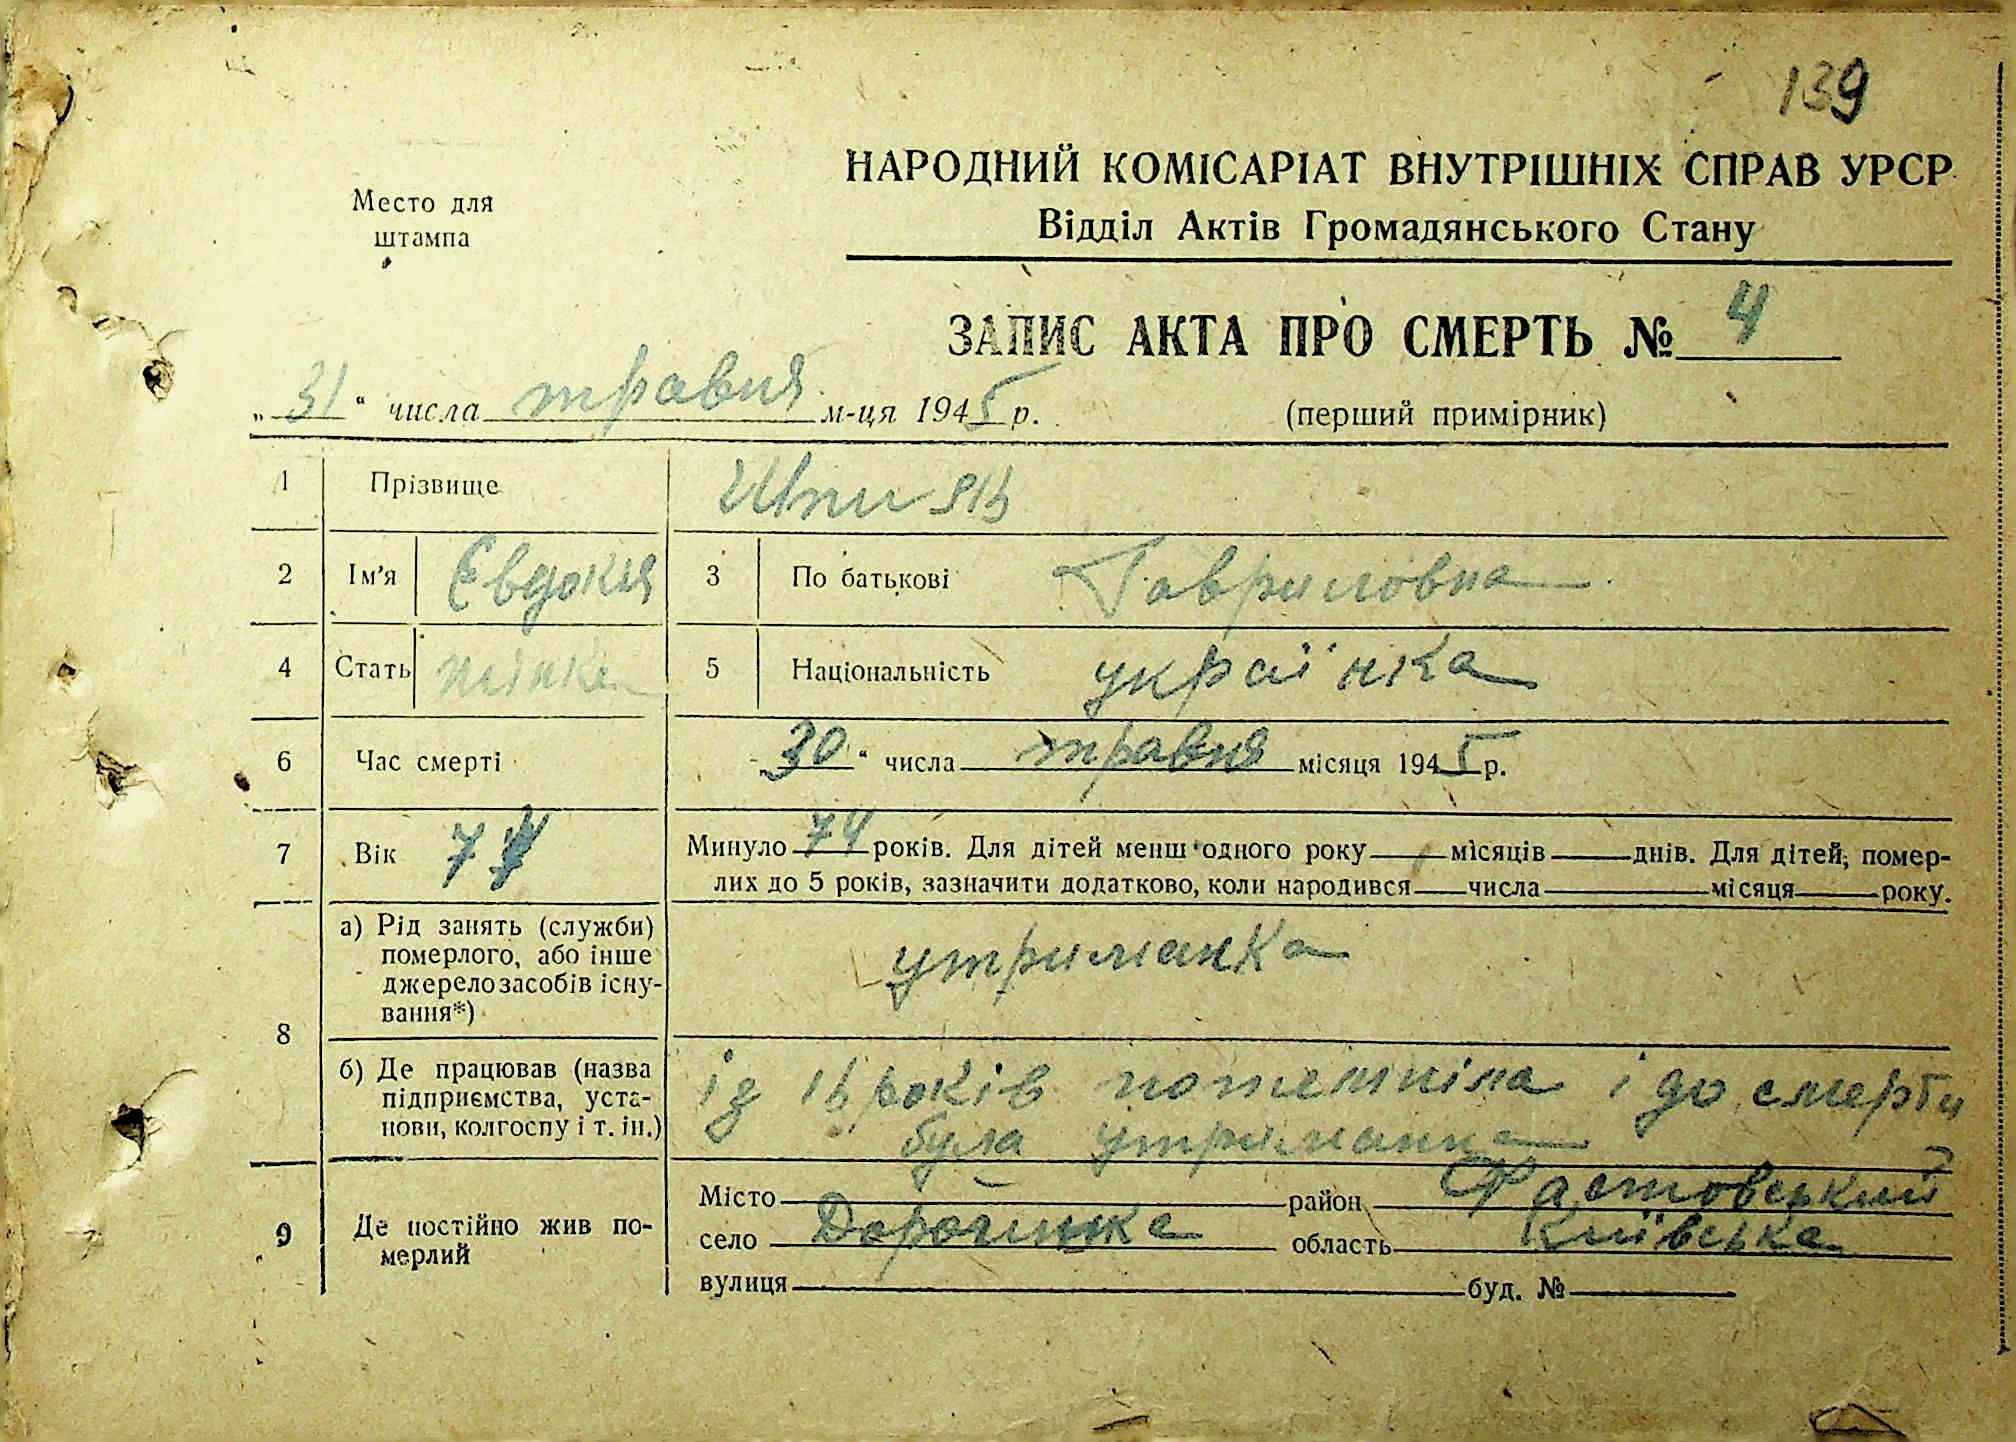 139
НАРОДНИЙ КОМІСАРІАТ ВНУТРІШНІХ СПРАВ УРСР
Відділ Актів Громадянського Стану
Место для
штампа
ЗАПИС АКТА ПРО СМЕРТЬ № 4
„31“ числа травня м-ця 1945 р. (перший примірник)
1 Прізвище
2 Ім'я Євдокія 3 По батькові Гавриловна
4 Стать жінка 5 Національність українка
6 Час смерті „30“ числа травня місяця 1945 р.
7 Вік 74 Минуло 74 років. Для дітей менш одного року — місяців — днів. Для дітей, помер-
лих до 5 років, зазначити додатково, коли народився — числа — місяця — року.
8 а) Рід занять (служби)
померлого, або інше
джерело засобів існу-
вання*)
утриманка
б) Де працював (назва
підприємства, уста-
нови, колгоспу і т. ін.)
із 16 років і до смерти
була утриманка
9 Де постійно жив по-
мерлий
Місто — район Фастовський
село Дорогинка область Київська
вулиця — буд. № —